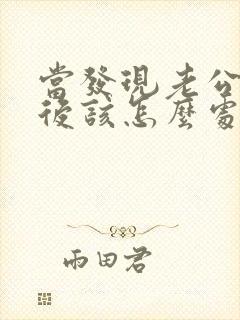 當發現老公
後該怎麼處
雨田君